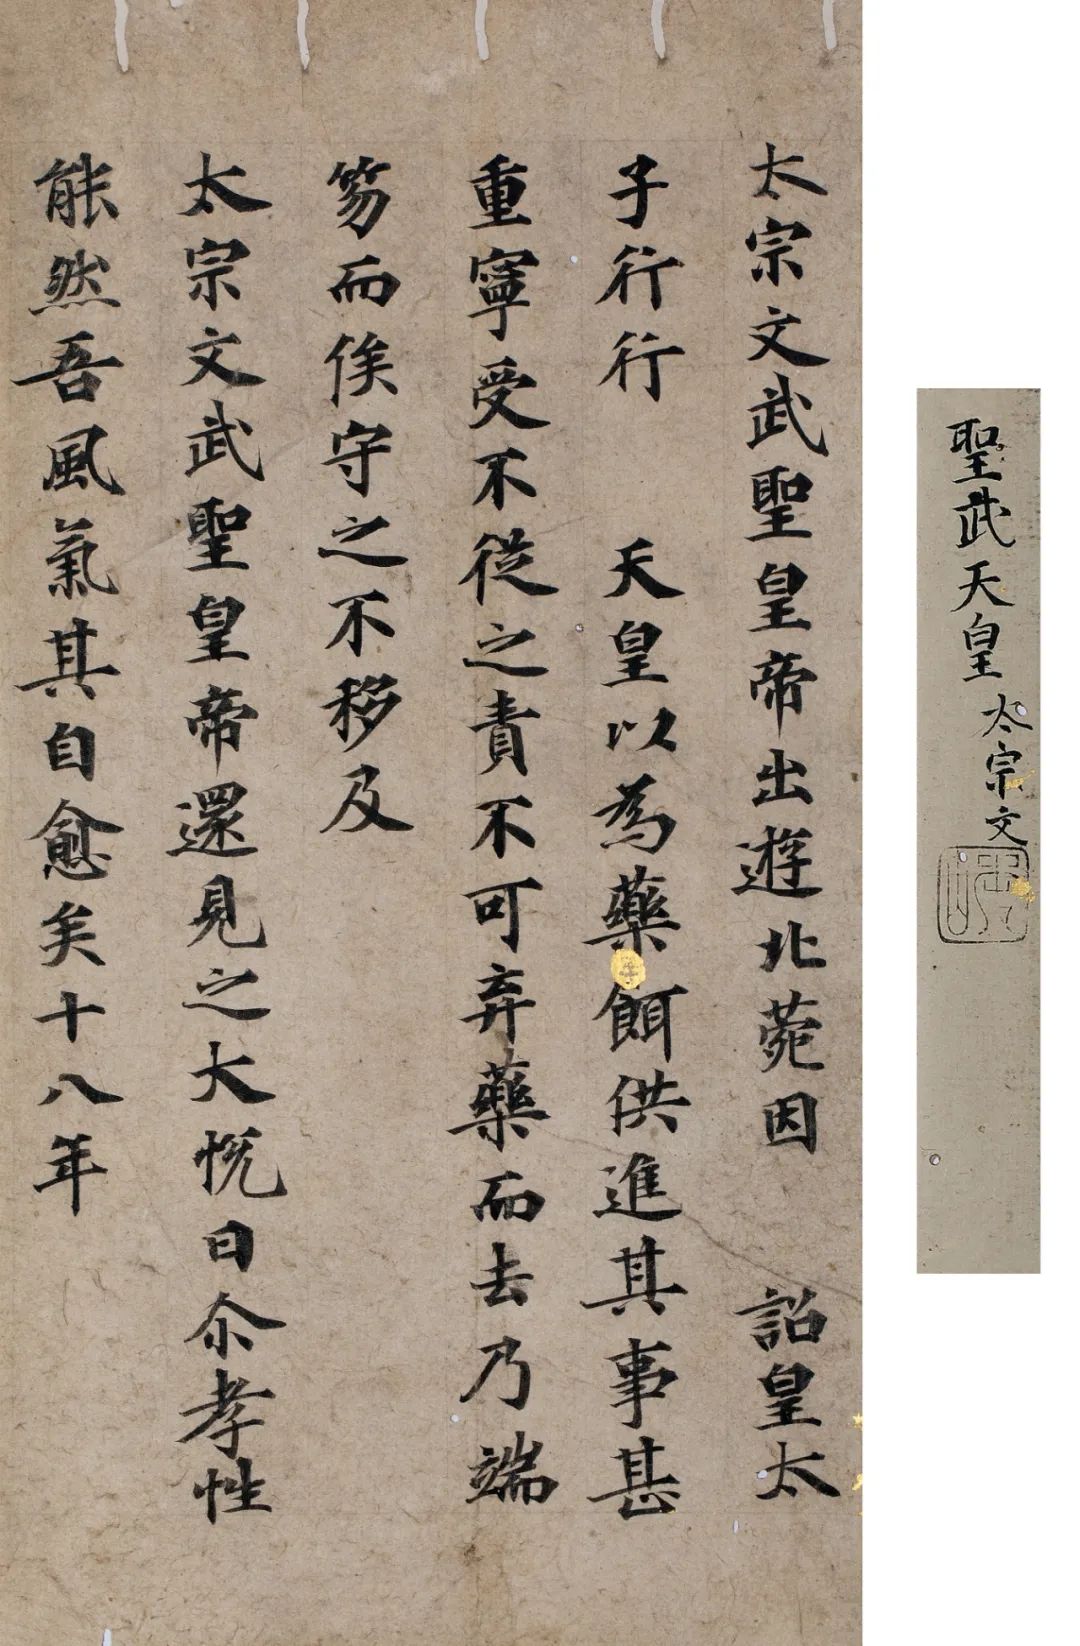 太宗文武聖皇帝出遊北菀因　詔皇太
子行行　天皇以為藥餌供進其事甚
重寧受不從之責不可弃藥而去乃端
笏而俟守之不移及
太宗文武聖皇帝還見之大慨曰尒孝性
能然吾風氣其自愈矣十八年
聖武天皇 太宗文